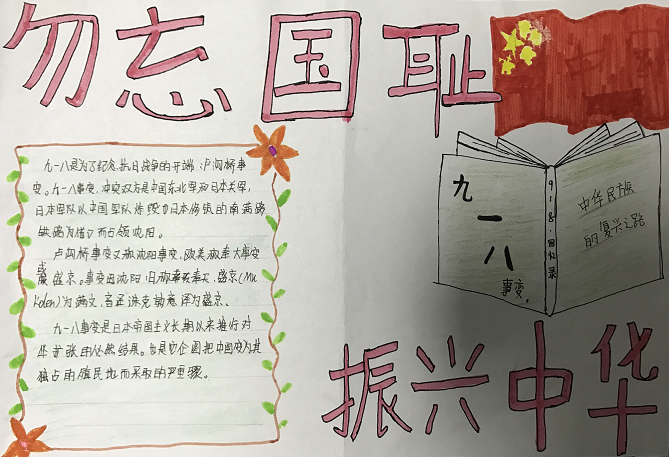 勿忘国耻
九一八是为了纪念抗日战争的开端,卢沟桥事
变。九一八事变,冲突双方是中国东北军和日本关军,
日本军队以中国军队炸毁日本修筑的南满路
铁路为借口而占领沈阳。
卢沟桥事变又称沈阳事变,
盛京。事变因沈阳旧称奉天,盛京(Mu
kden)为满文,译为盛京。
九一八事变是日本帝国主义长期以来推行对
华扩张的必然结果。也是它企图把中国变为其
独占的殖民地而采取的严重骤。
九一八
事变。
918·回忆录
中华民族
的复兴之路
振兴中华